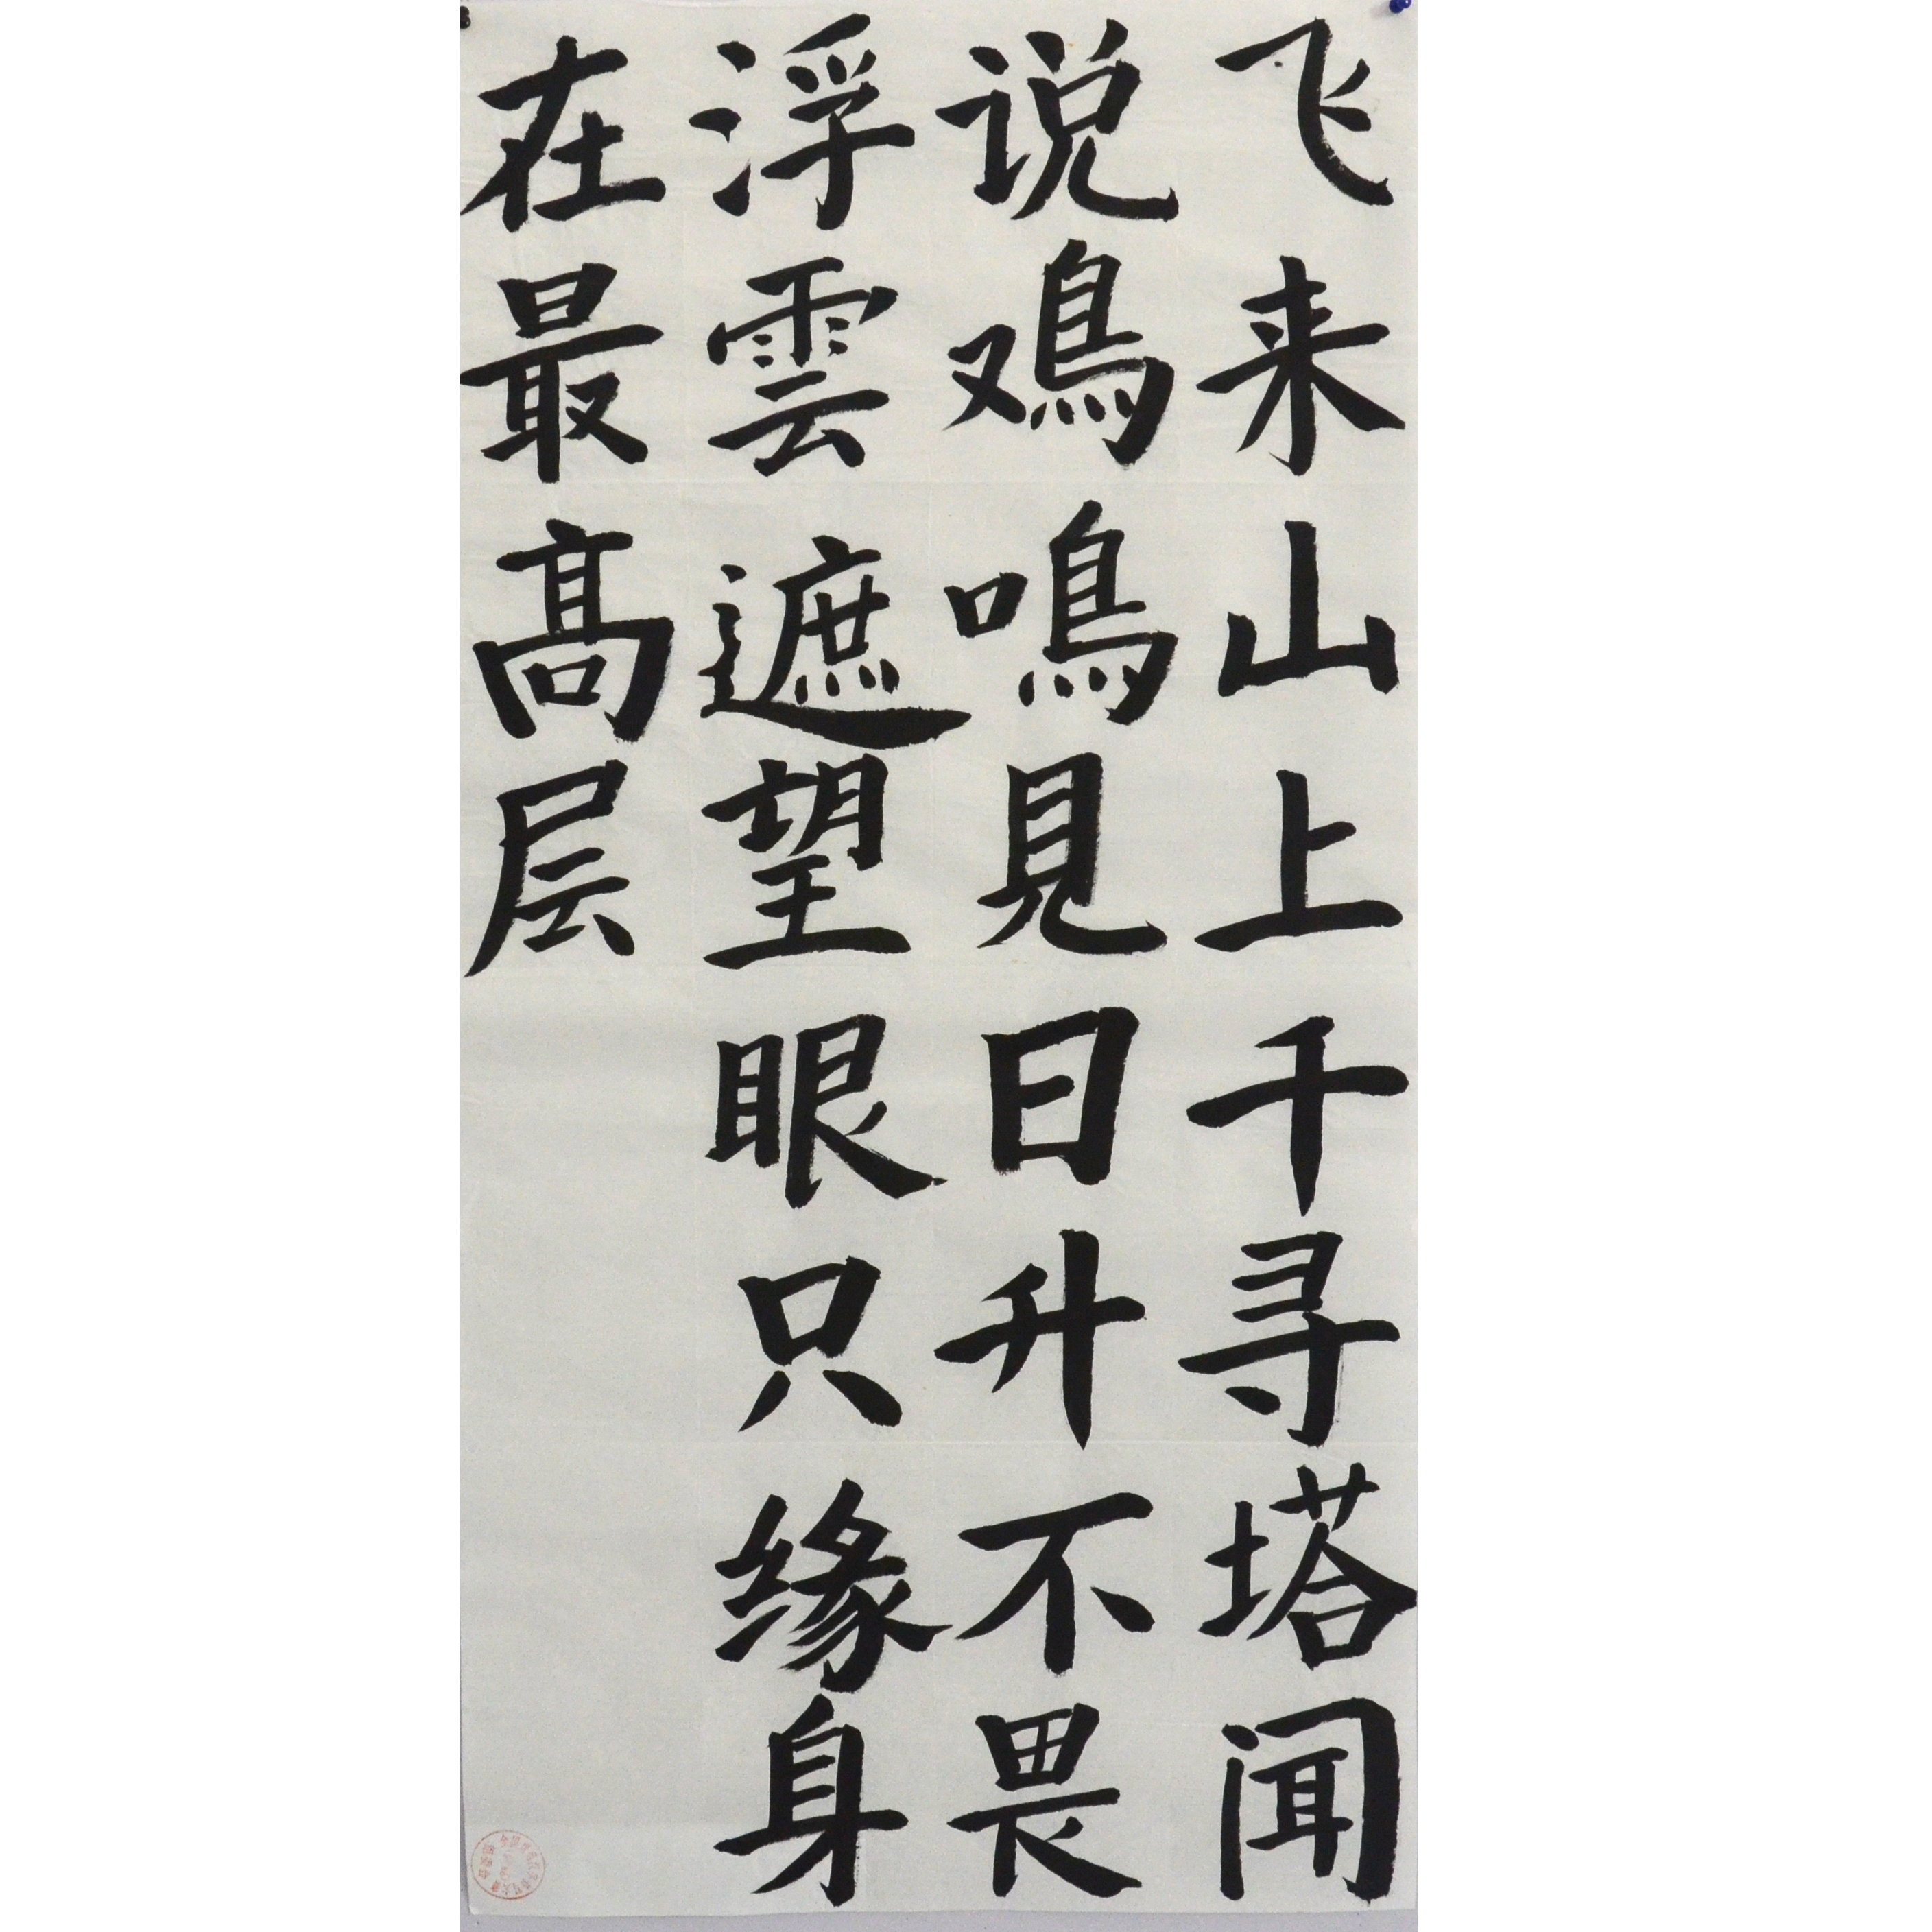 飞来山上千寻塔闻
说鳮鳴見日升不畏
浮雲遮望眼只缘身
在最高层